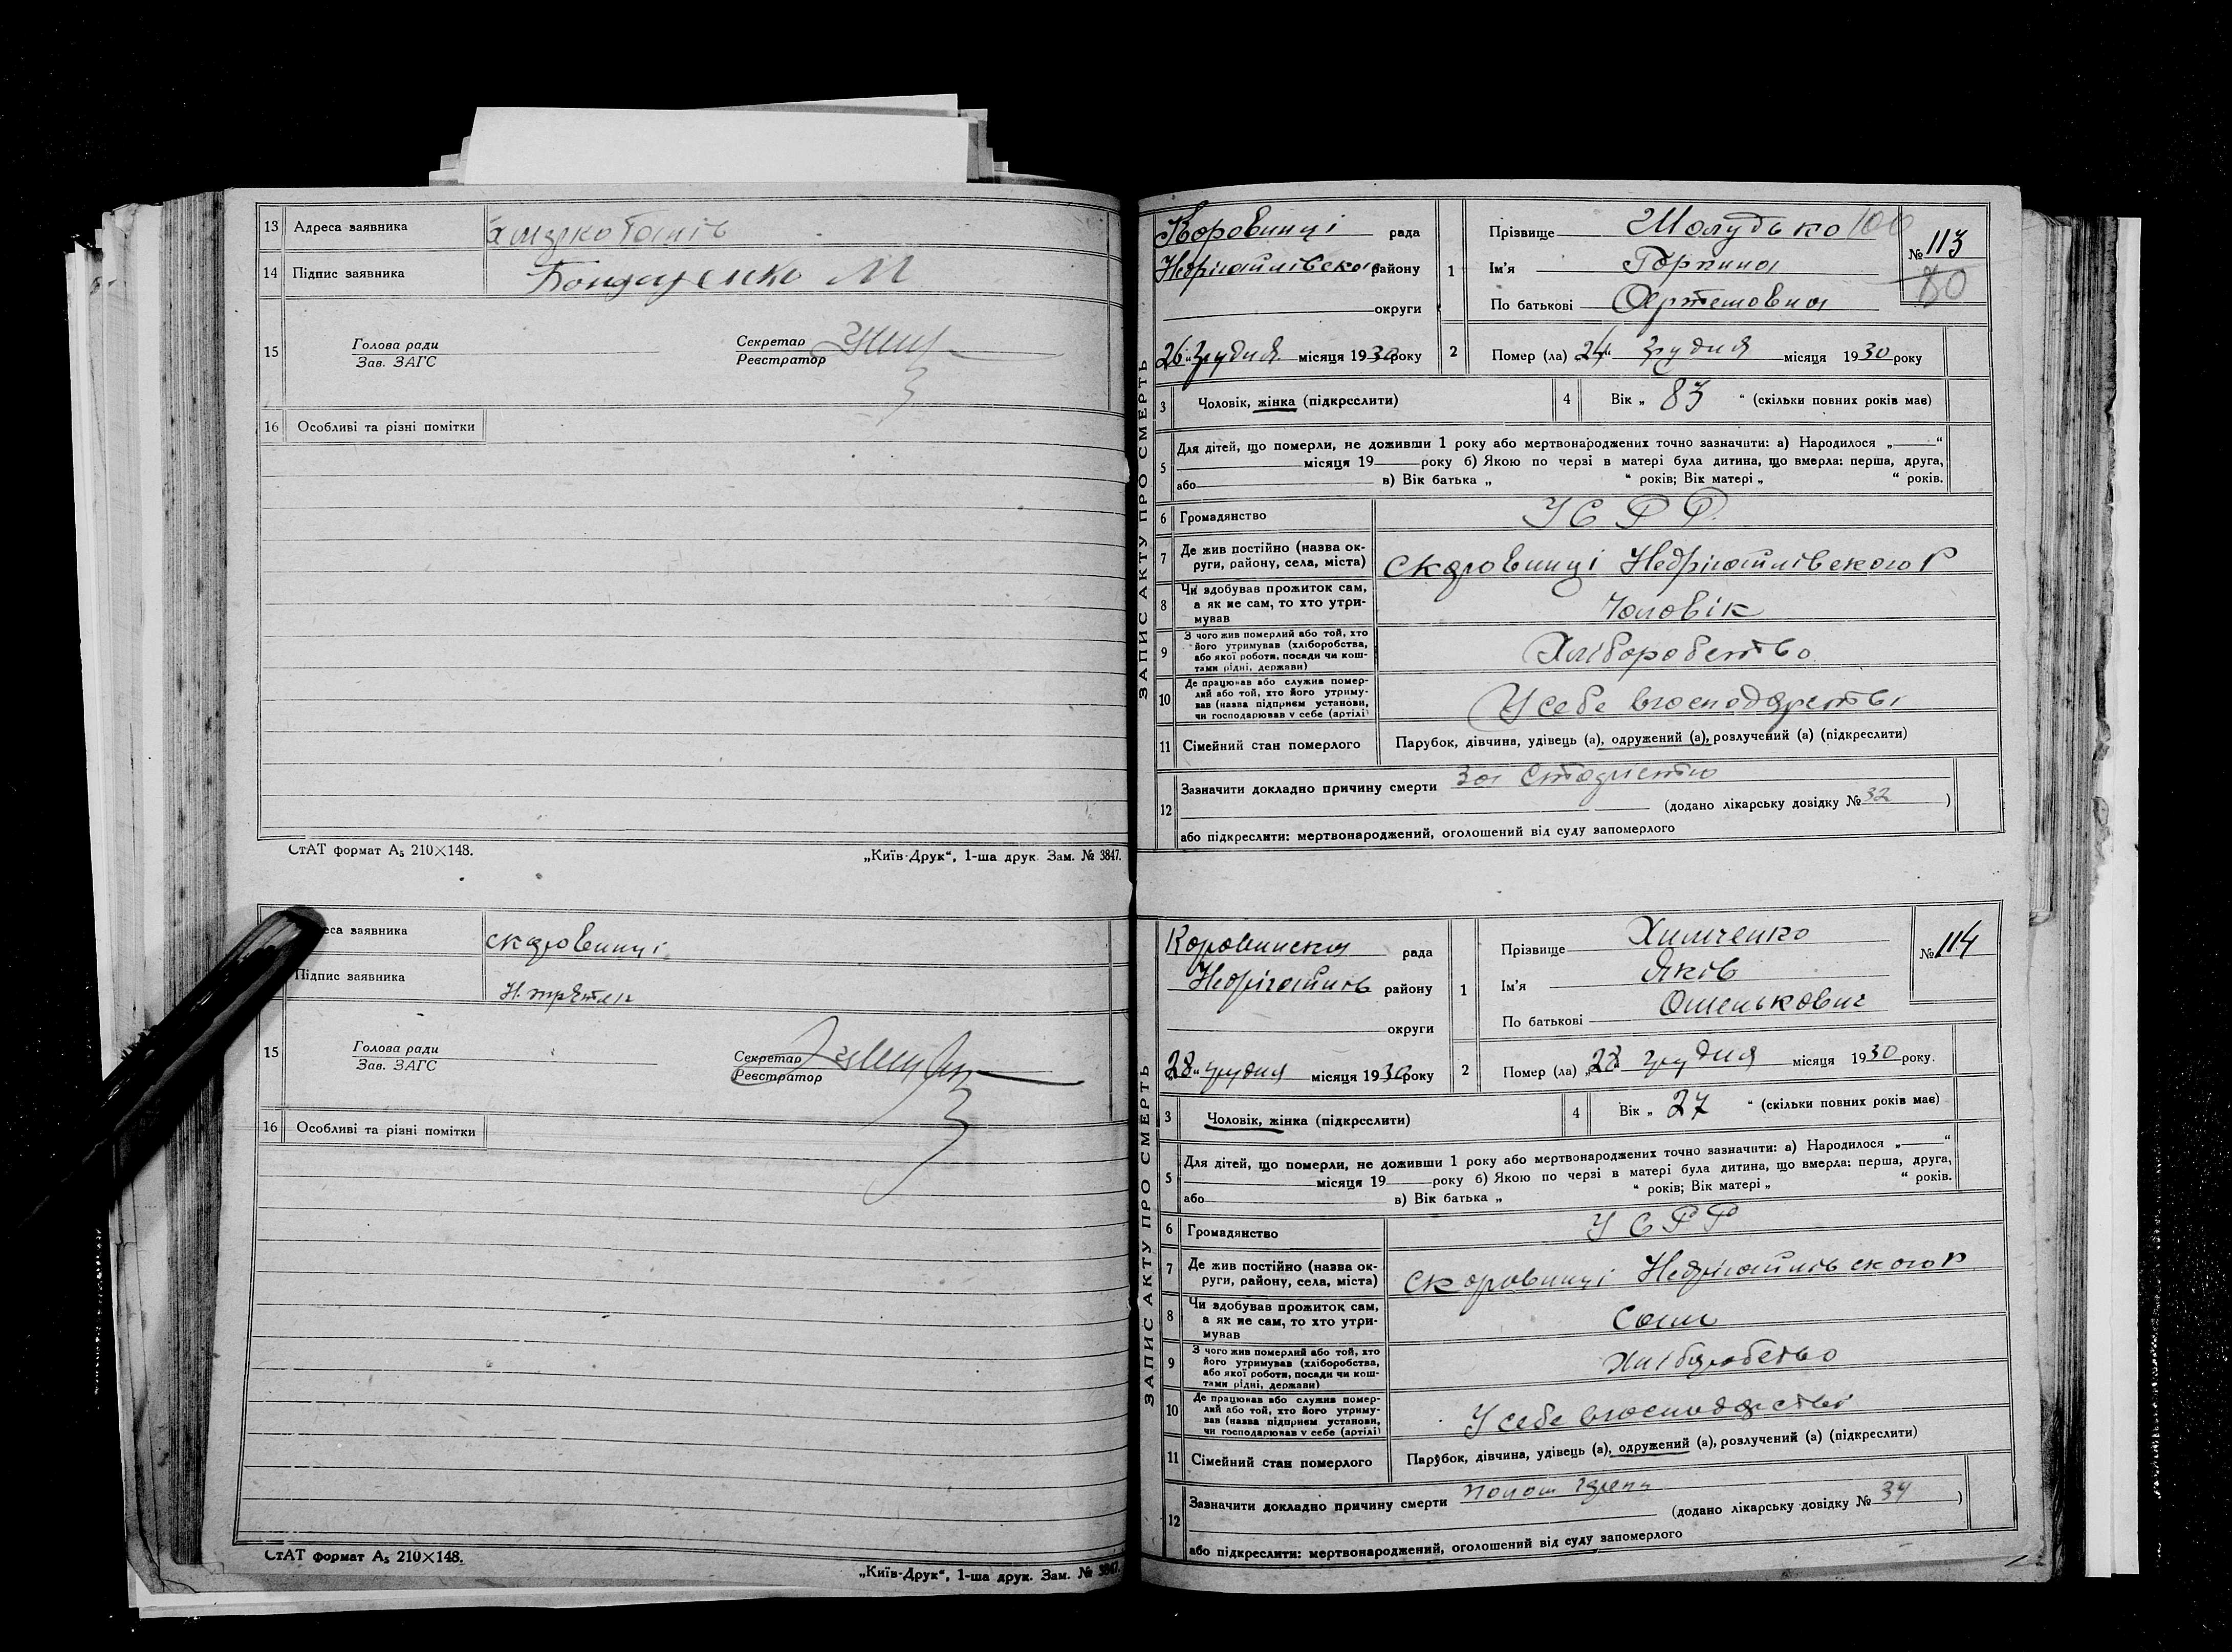 13 Адреса заявника
14 Підпис заявника Бондаренко М
15 Голова ради
Зав. ЗАГС
Секретар
Реєстратор
16 Особливі та різні помітки
СтАТ формат А5 210×148.
„Київ-Друк“, 1-ша друк. Зам. № 3847.
еса заявника скоровинці
Підпис заявника
15 Голова ради
Зав. ЗАГС
Секретар
Реєстратор
16 Особливі та різні помітки
СтАТ формат А5 210×148.
„Київ-Друк“, 1-ша друк. Зам. № 3847.
ЗАПИС АКТУ ПРО СМЕРТЬ
Коровинці рада
Недригайлівского району
округи
26 „ грудня місяця 1930 року
1 Прізвище Шолудько 100
Ім'я Горпина
По батькові Артемовна
№ 113
80
2 Помер (ла) 24 “ грудня місяця 1930 року
3 Чоловік, жінка (підкреслити)
4 Вік „ 83 “ (скільки повних років має)
5 Для дітей, що померли, не доживши 1 року або мертвонароджених точно зазначити: а) Народилося „ “
місяця 19 року б) Якою по черзі в матері була дитина, що вмерла: перша, друга,
або в) Вік батька „ “ років; Вік матері „ “ років.
6 Громадянство УСРР
7 Де жив постійно (назва ок-
руги, району, села, міста) скоровинці Недригайлівского Р
8 Чи здобував прожиток сам,
а як не сам, то хто утри-
мував Чоловік
9 З чого жив померлий або той, хто
його утримував (хліборобства,
або якої роботи, посади чи кош-
тами рідні, держави) Хліборобство
10 Де працював або служив помер-
лий або той, хто його утриму-
вав (назва підприєм установи,
чи господарював у себе (артілі) У себе вгосподарстві
11 Сімейний стан померлого Парубок, дівчина, удівець (а), одружений (а), розлучений (а) (підкреслити)
12 Зазначити докладно причину смерти
(додано лікарську довідку № 32 )
або підкреслити: мертвонароджений, оголошений від суду запомерлого
ЗАПИС АКТУ ПРО СМЕРТЬ
Коровинска рада
району
округи
„28 „ грудня місяця 1930 року
1 Прізвище Химченко
Ім'я Яків
По батькові
№ 114
2 Помер (ла) „28 грудня місяця 1930 року.
3 Чоловік, жінка (підкреслити)
4 Вік „ 27 “ (скільки повних років має)
5 Для дітей, що померли, не доживши 1 року або мертвонароджених точно зазначити: а) Народилося „ “
місяця 19 року б) Якою по черзі в матері була дитина, що вмерла: перша, друга,
або в) Вік батька „ “ років; Вік матері „ “ років.
6 Громадянство УСРР
7 Де жив постійно (назва ок-
руги, району, села, міста) скоровинці Недригайлівского Р
8 Чи здобував прожиток сам,
а як не сам, то хто утри-
мував Сам
9 З чого жив померлий або той, хто
його утримував (хліборобства,
або якої роботи, посади чи кош-
тами рідні, держави) Хліборобство
10 Де працював або служив помер-
лий або той, хто його утриму-
вав (назва підприєм установи,
чи господарював у себе (артілі) У себе вгосподарстві
11 Сімейний стан померлого Парубок, дівчина, удівець (а), одружений (а), розлучений (а) (підкреслити)
12 Зазначити докладно причину смерти
(додано лікарську довідку № 34 )
або підкреслити: мертвонароджений, оголошений від суду запомерлого